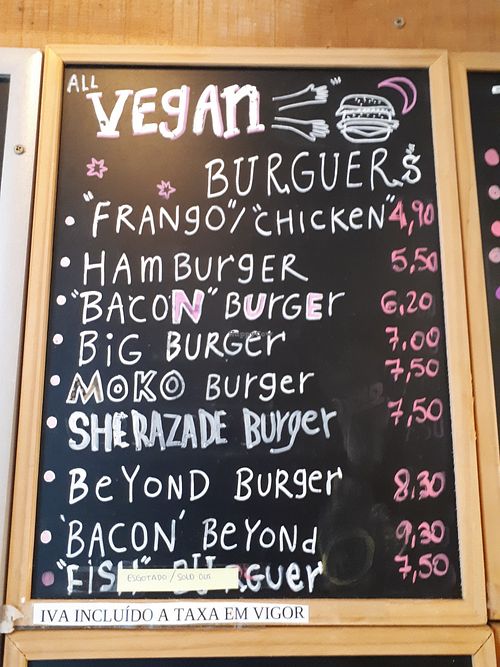 ALL
VEGAN
BURGUERS
"FRANGO"/"CHICKEN" 4,90
HAMBURGER 5,50
"BACON" BURGER 6,20
BIG BURGER 7,00
MOKO Burger 7,50
SHERAZADE Burger 7,50
BEYOND Burger 8,30
'BACON' BEYOND 9,30
"FISH" BURGuer 7,50
ESGOTADO / SOLD OUT
IVA INCLUÍDO A TAXA EM VIGOR